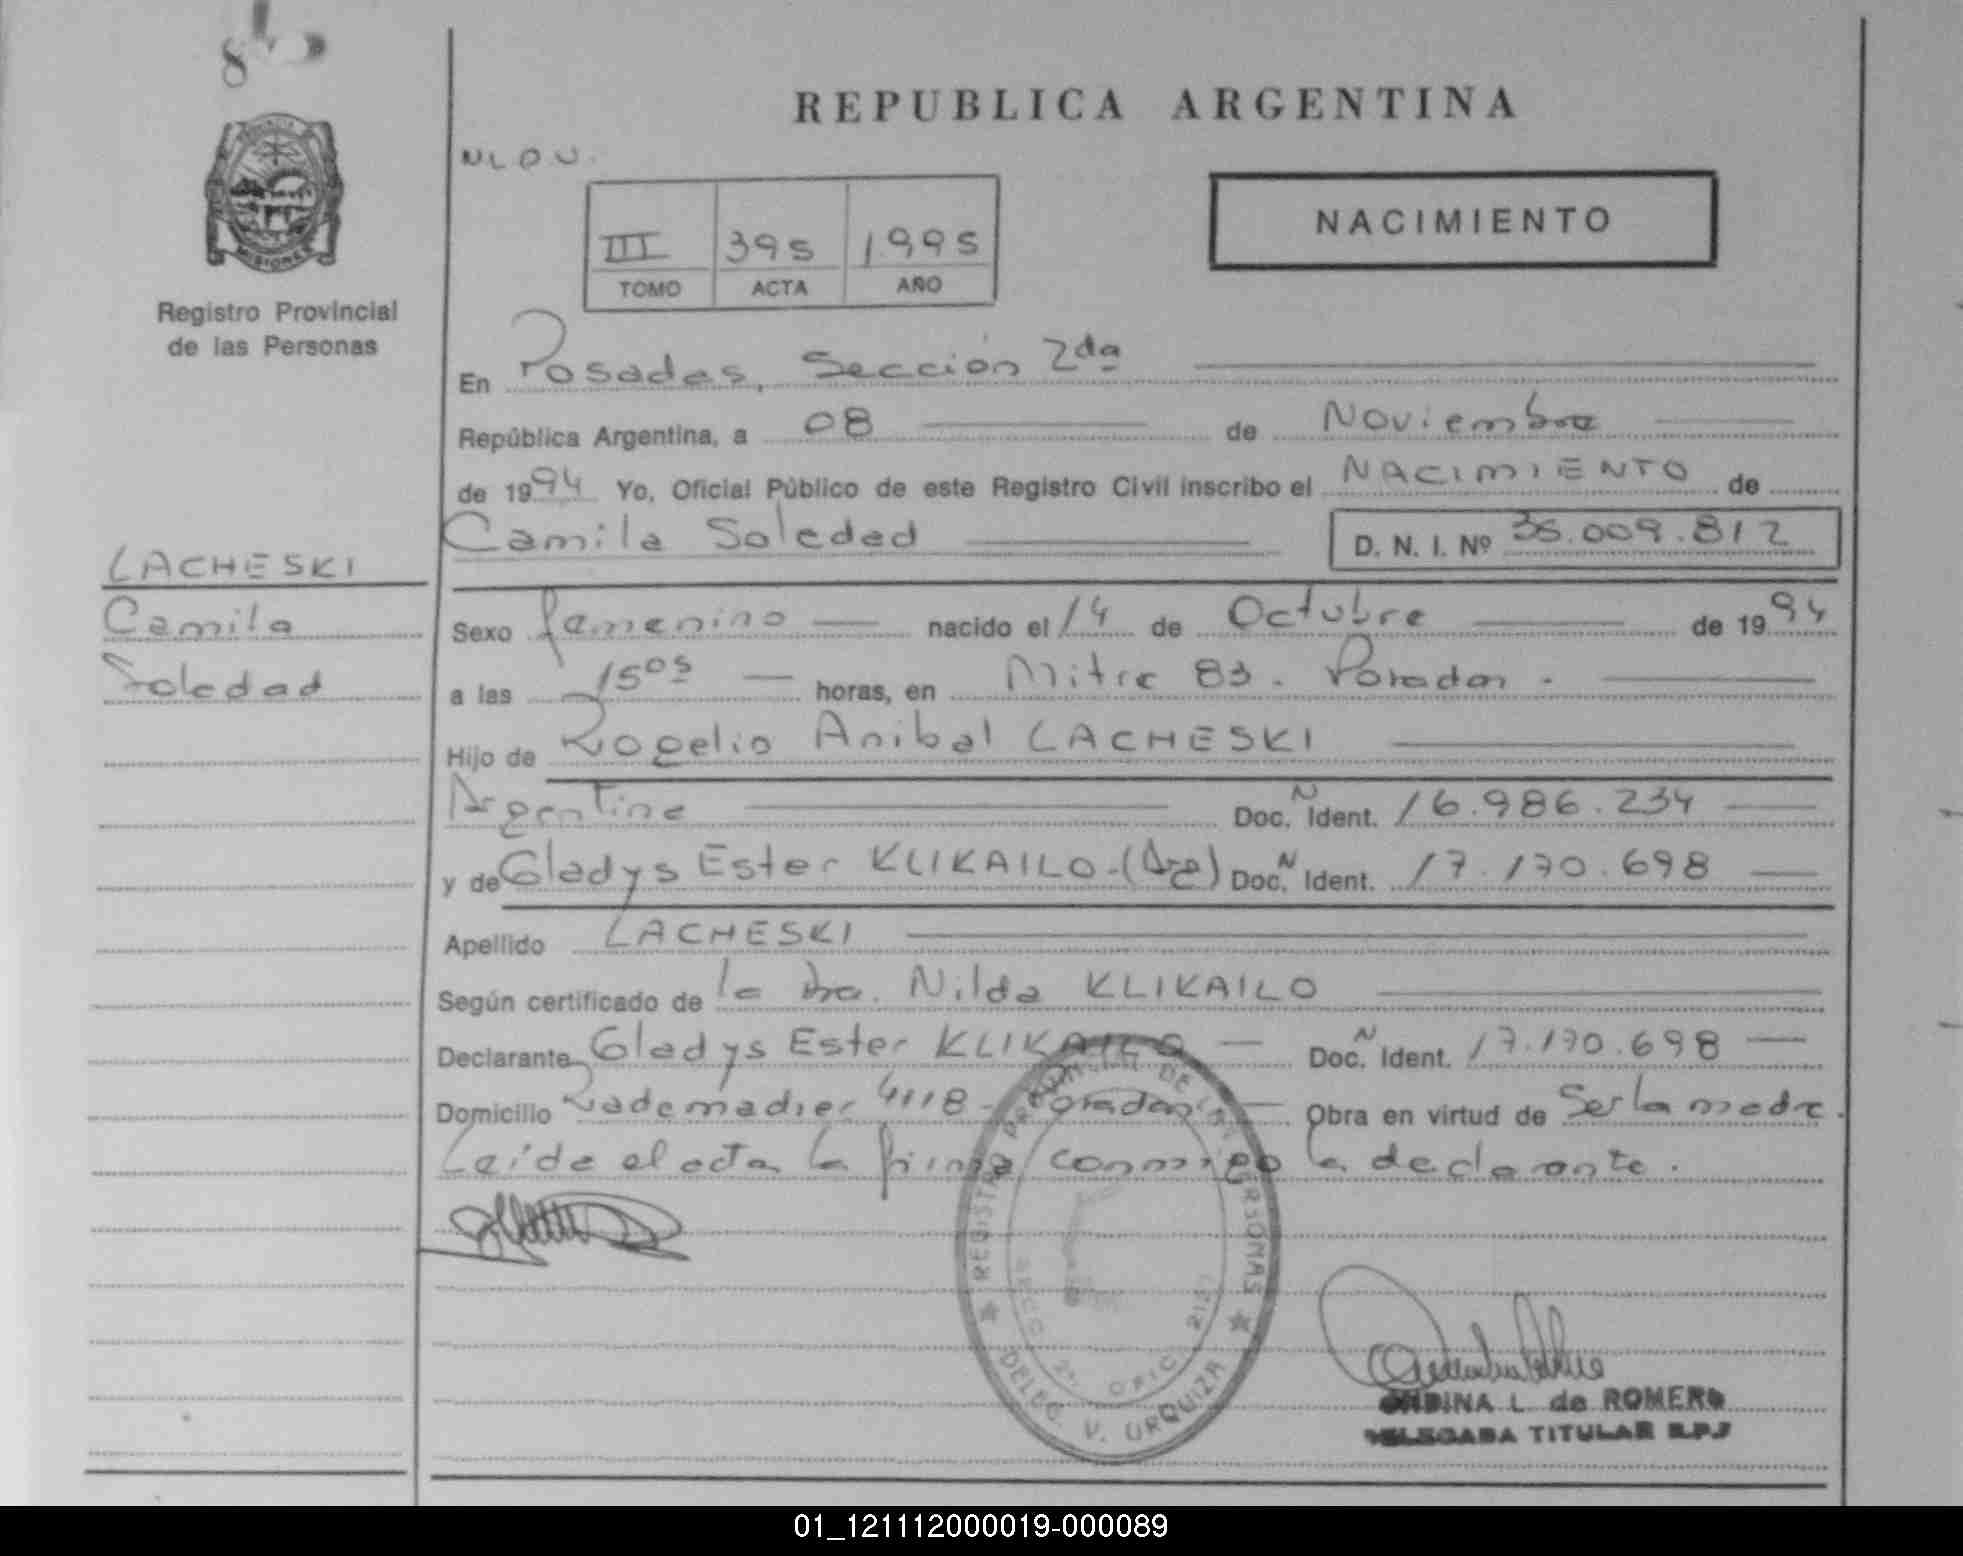 REPUBLICA ARGENTINA
PROVINCIA
MISIONES
Registro Provincial
de las Personas
III 395 1.995
TOMO ACTA AÑO
NACIMIENTO
En Posadas, Sección 2da
República Argentina, a 08 de Noviembre
de 1994 Yo, Oficial Público de este Registro Civil inscribo el NACIMIENTO de
Camila Soledad D. N. I. Nº 36.009.812
LACHESKI
Camila
Soledad
Sexo femenino nacido el 14 de Octubre de 1994
a las 15 05 horas, en Mitre 83. Posadas.
Hijo de Rogelio Anibal LACHESKI
Argentino Doc. N Ident. 16.986.234
y de Gladys Ester KLIKAILO-(Arg) Doc. N Ident. 17.170.698
Apellido LACHESKI
Según certificado de la Dra. Nilda KLIKAILO
Declarante Gladys Ester KLIKAILO Doc. N Ident. 17.170.698
Domicilio Rademacher 4118 - Posadas Obra en virtud de Ser la madre.
Leída el acta la firma conmigo la declarante.
REGISTRO PROVINCIAL DE LAS PERSONAS
SECC. 2ª OFIC.
DELEG. V. URQUIZA
L. de ROMERO
DELEGADA TITULAR R.P.P
01_121112000019-000089